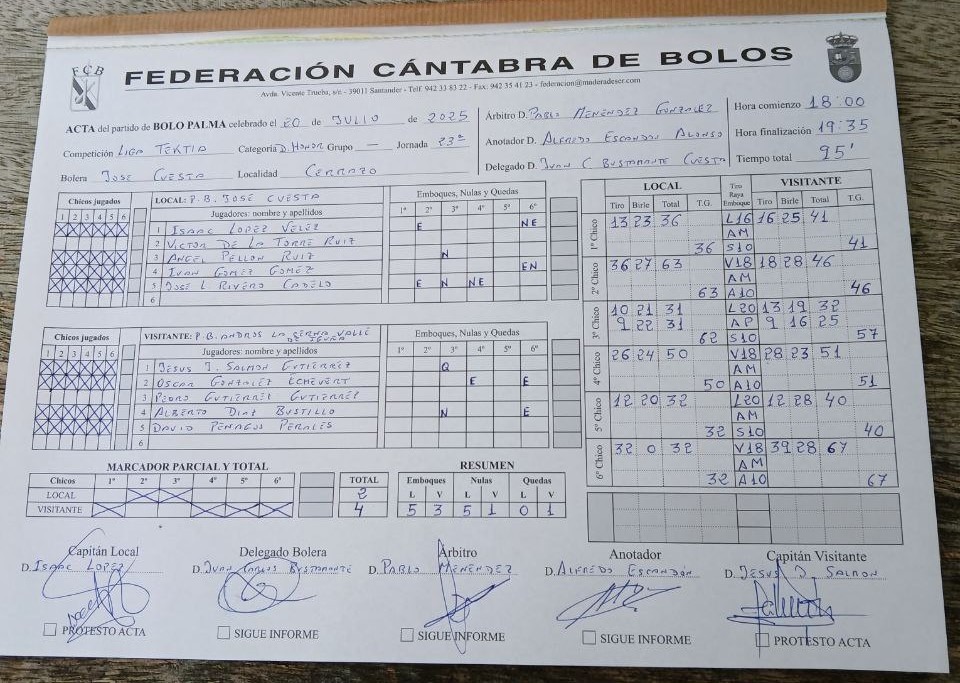 FCB
FEDERACIÓN CÁNTABRA DE BOLOS
Avda. Vicente Trueba, s/n - 39011 Santander - Telf. 942 33 83 22 - Fax: 942 35 41 23 - federacion@maderadeser.com
ACTA del partido de BOLO PALMA celebrado el 20 de JULIO de 2025
Competición LIGA TEKTIA Categoría D. HONOR Grupo — Jornada 23ª
Bolera JOSE CUESTA Localidad CERRAZO
Árbitro D. PABLO MENENDEZ GONZALEZ
Anotador D. ALFREDO ESCANDON ALONSO
Delegado D. JUAN C BUSTAMANTE CUESTA
Hora comienzo 18:00
Hora finalización 19:35
Tiempo total 95'
Chicos jugados LOCAL: P.B. JOSE CUESTA Emboques, Nulas y Quedas
1 2 3 4 5 6 Jugadores: nombre y apellidos 1º 2º 3º 4º 5º 6º
1 ISAAC LOPEZ VELEZ E NE
2 VICTOR DE LA TORRE RUIZ
3 ANGEL PELLON RUIZ N
4 IVAN GOMEZ GOMEZ EN
5 JOSE L RIVERO CADELO E N NE
6
Chicos jugados VISITANTE: P.B. ANDROS LA SERNA VALLE DE IGUÑA Emboques, Nulas y Quedas
1 2 3 4 5 6 Jugadores: nombre y apellidos 1º 2º 3º 4º 5º 6º
1 JESUS J. SALMON GUTIERREZ Q
2 OSCAR GONZALEZ ECHEVERT E E
3 PEDRO GUTIERREZ GUTIERREZ
4 ALBERTO DIAZ BUSTILLO N E
5 DAVID PENAGOS PERALES
6
LOCAL Tiro Raya Emboque VISITANTE
Tiro Birle Total T.G. Tiro Birle Total T.G.
1º Chico 13 23 36 L16 16 25 41
AM
36 S10 41
2º Chico 36 27 63 V18 18 28 46
AM
63 A10 46
3º Chico 10 21 31 L20 13 19 32
9 22 31 AP 9 16 25
62 S10 57
4º Chico 26 24 50 V18 28 23 51
AM
50 A10 51
5º Chico 12 20 32 L20 12 28 40
AM
32 S10 40
6º Chico 32 0 32 V18 39 28 67
AM
32 A10 67
MARCADOR PARCIAL Y TOTAL
Chicos 1º 2º 3º 4º 5º 6º TOTAL
LOCAL 2
VISITANTE 4
RESUMEN
Emboques Nulas Quedas
L V L V L V
5 3 5 1 0 1
Capitán Local Delegado Bolera Árbitro Anotador Capitán Visitante
D. ISAAC LOPEZ D. JUAN CARLOS BUSTAMANTE D. PABLO MENENDEZ D. ALFREDO ESCANDÓN D. JESUS J. SALMON
PROTESTO ACTA SIGUE INFORME SIGUE INFORME SIGUE INFORME PROTESTO ACTA